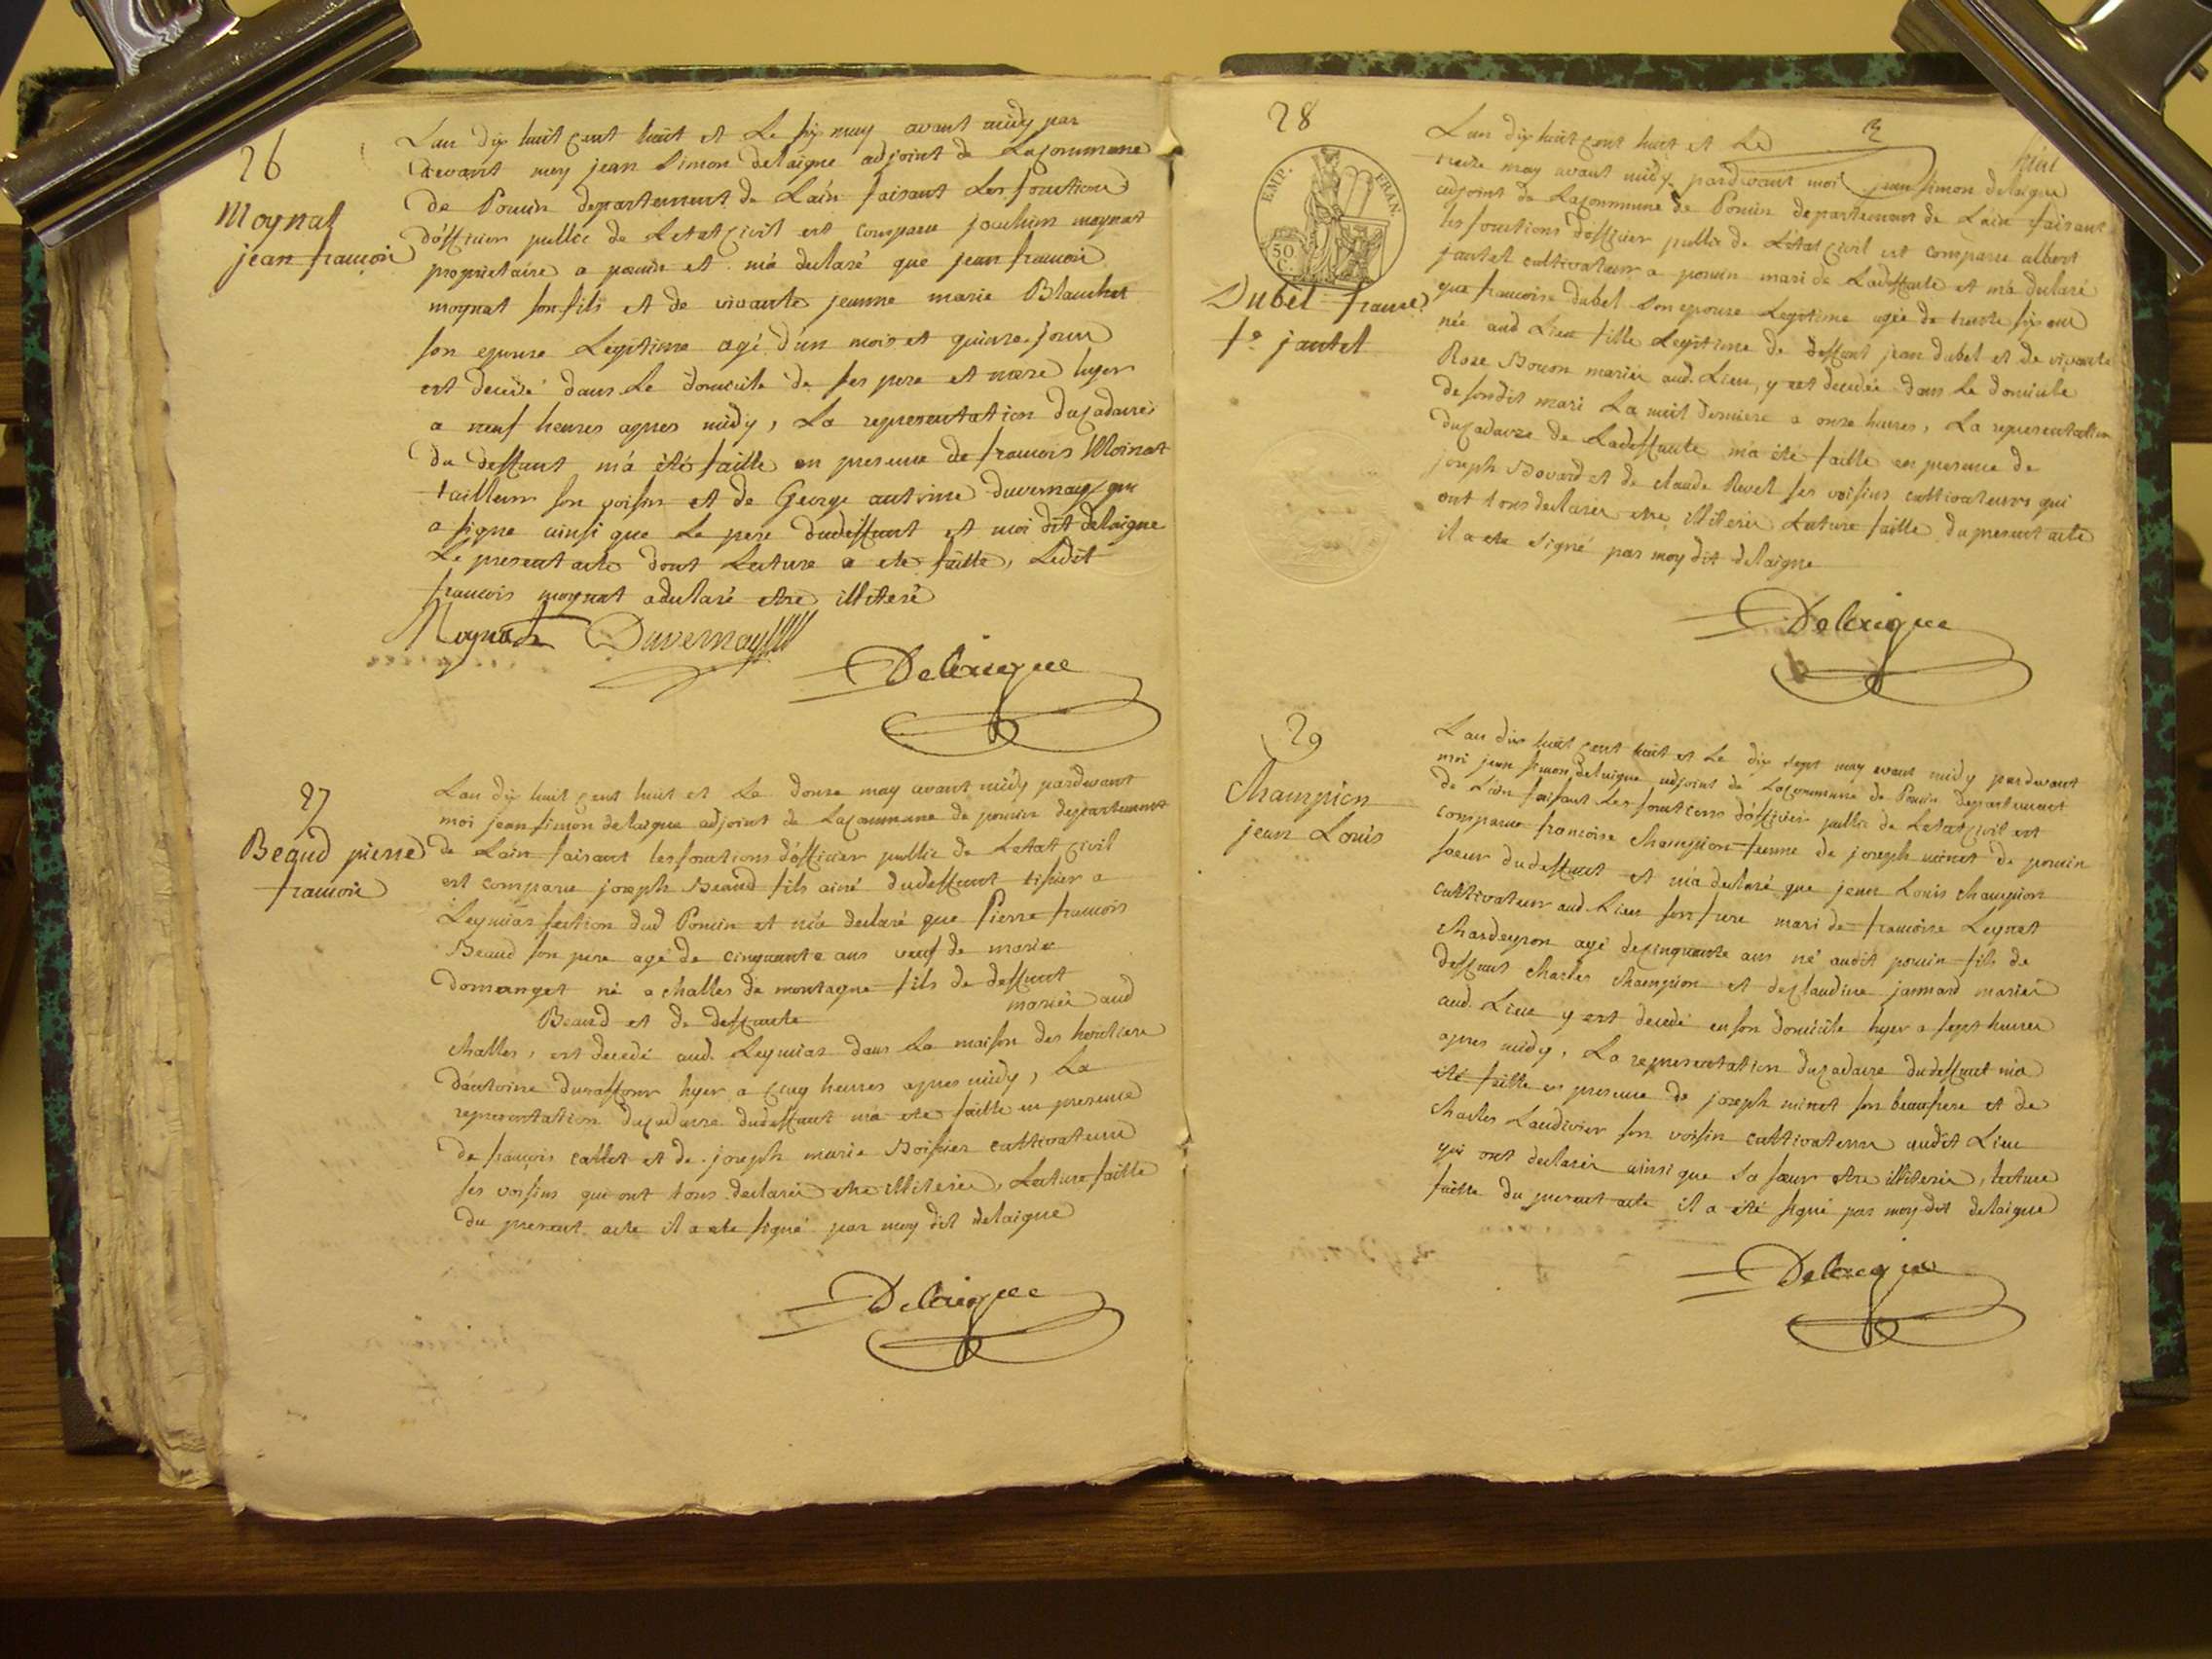 26
Moynat
jean francois
Lan dix huit cent huit et Le six may avant midy par
devant moy jean Simon delaigue adjoint de Lacommune
de Poncin departement de Lain faisant Les fonctions
dofficier public de Letat Civil est comparu joachim moynat
proprietaire a poncin et m'a declaré que jean francois
moynat son fils et de vivante jeanne marie Blanchet
son epouse Legitime agé d'un mois et quinze jours
est decedé dans Le domicile de ses pere et mere hyer
a neuf heures apres midy, La representation ducadavre
du deffunt m'a été faitte en presence de francois Moinat
tailleur son voisin et de George antoine duvernay qui
a signe ainsi que Le pere dudeffunt et moi dit delaigue
Le present acte dont Lecture a ete faitte, Ledit
francois moynat adeclaré etre illiteré
Moynat Duvernay
Delaigue
27
Beaud pierre
francois
Lan dix huit cent huit et Le douze may avant midy pardevant
moi jean simon delaigue adjoint de Lacommune de poncin departement
de Lain faisant lesfonctions dofficier public de Letat civil
est comparu joseph Beaud fils ainé dudeffunt tissier a
Leymiar section dud Poncin et m'a declaré que Pierre francois
Beaud son pere agé de cinquante ans veuf de marie
domanget né a challes de montagne fils de deffunt
Beaud et de deffunte mariés aud
challes, est decedé aud. Leymiar dans La maison des heritiers
d'antoine durassour hyer a cinq heures apres midy, La
representation ducadavre dudeffunt m'a ete faitte en presence
de francois callet et de joseph marie Boissier cultivateurs
ses voisins qui ont tous declarés etre illiterés, Lecture faitte
du present acte il a ete signé par moy dit delaigue
Delaigue
28
EMP. FRAN.
50
C.
Dubel francse
fe jantet
Lan dix huit cent huit et Le
treize may avant midy pardevant moi jean simon delaigue
adjoint de Lacommune de Poncin departement de Lain faisant
les fonctions dofficier public de Létat Civil est comparu albert
jantet cultivateur a poncin mari de Ladeffunte et m'a declaré
que francoise dubel son epouse Legitime agée de trente six ans
née aud Lieu fille Legitime de deffunt jean dubel et de vivante
Roze Bouon mariés aud. Lieu, y est decedée dans Le domicile
de sondit mari La nuit derniere a onze heures, La representation
ducadavre de Ladeffunte m'a été faitte en presence de
joseph Bovard et de claude Revel ses voisins cultivateurs qui
ont tous declarés etre illiterés Lecture faitte du present acte
il a ete signé par moy dit delaigue
Delaigue
29
Champion
jean Louis
Lan dix huit cent huit et Le dix sept may avant midy pardevant
moi jean simon delaigue adjoint de Lacommune de Poncin departement
de Lain faisant Les fonctions d'officier public de Letat civil est
comparue francoise champion femme de joseph minet de poncin
soeur dudeffunt et m'a declaré que jean Louis champion
cultivateur aud Lieu son frere mari de francoise Leynat
chardeyron agé decinquante ans né audit poncin fils de
deffunt charles champion et declaudine jannard mariés
aud. Lieu y est decedé enson domicile hyer a sept heures
apres midy, La representation ducadavre dudeffunt m'a
été faitte en presence de joseph minet son beaufrere et de
charles Laudivier son voisin cultivateurs audit Lieu
qui ont declarés ainsi que sa soeur etre illiterés, lecture
faitte du present acte il a eté signé par moy dit delaigue
Delaigue